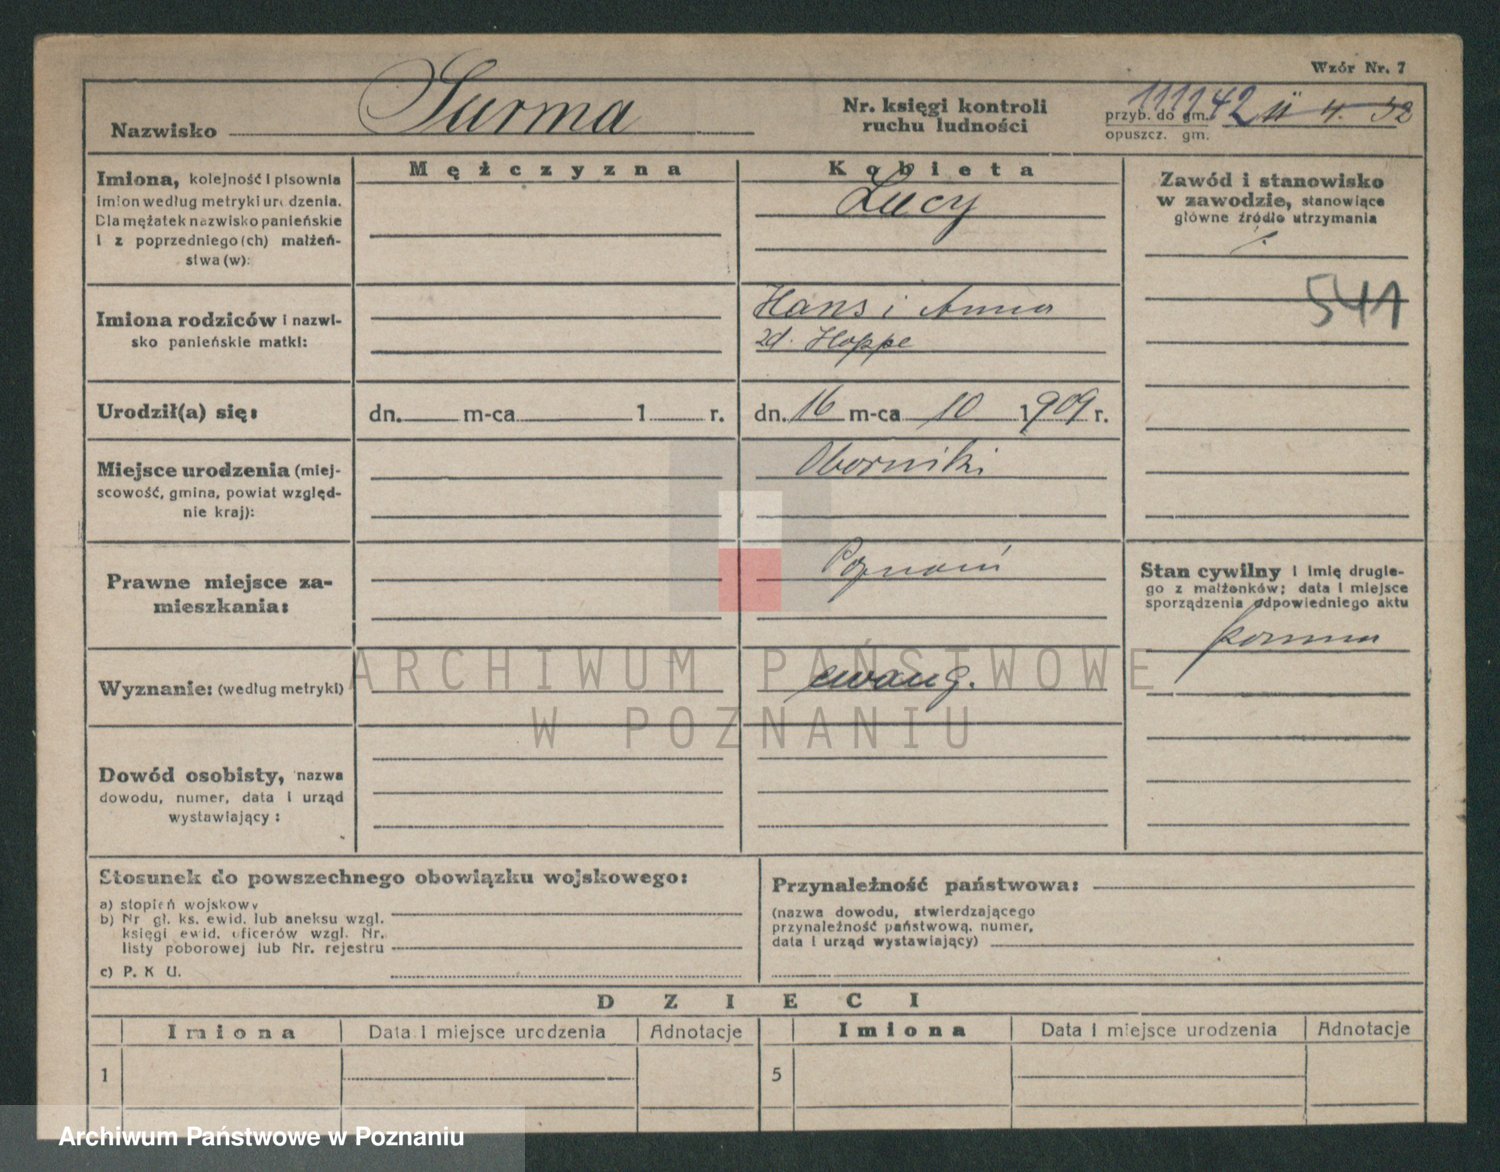 Wzór Nr. 7
Nazwisko Surma
Nr. księgi kontroli
ruchu ludności
przyb. do gm.
opuszcz. gm.
11 4. 32
Mężczyzna
Kobieta
Imiona, kolejność i pisownia
imion według metryki urodzenia.
Dla mężatek nazwisko panieńskie
i z poprzedniego(ch) małżeń-
stwa(w):
Lucy
Zawód i stanowisko
w zawodzie, stanowiące
główne źródło utrzymania
541
Imiona rodziców i nazwi-
sko panieńskie matki:
Hans i Anna
zd. Hoppe
Urodził(a) się:
dn. m-ca 1 r.
dn. 16 m-ca 10 1909 r.
Miejsce urodzenia (miej-
scowość, gmina, powiat względ-
nie kraj):
Oborniki
Prawne miejsce za-
mieszkania:
Poznań
Stan cywilny i imię drugie-
go z małżonków; data i miejsce
sporządzenia odpowiedniego aktu
panna
Wyznanie: (według metryki)
ewang.
ARCHIWUM PAŃSTWOWE
W POZNANIU
Dowód osobisty, nazwa
dowodu, numer, data i urząd
wystawiający:
Stosunek do powszechnego obowiązku wojskowego:
a) stopień wojskowy
b) Nr gł. ks. ewid. lub aneksu wzgl.
księgi ewid. oficerów wzgl. Nr.
listy poborowej lub Nr. rejestru
c) P. K U.
Przynależność państwowa:
(nazwa dowodu, stwierdzającego
przynależność państwową. numer,
data i urząd wystawiający)
DZIECI
Imiona Data i miejsce urodzenia Adnotacje Imiona Data i miejsce urodzenia Adnotacje
1 5
Archiwum Państwowe w Poznaniu